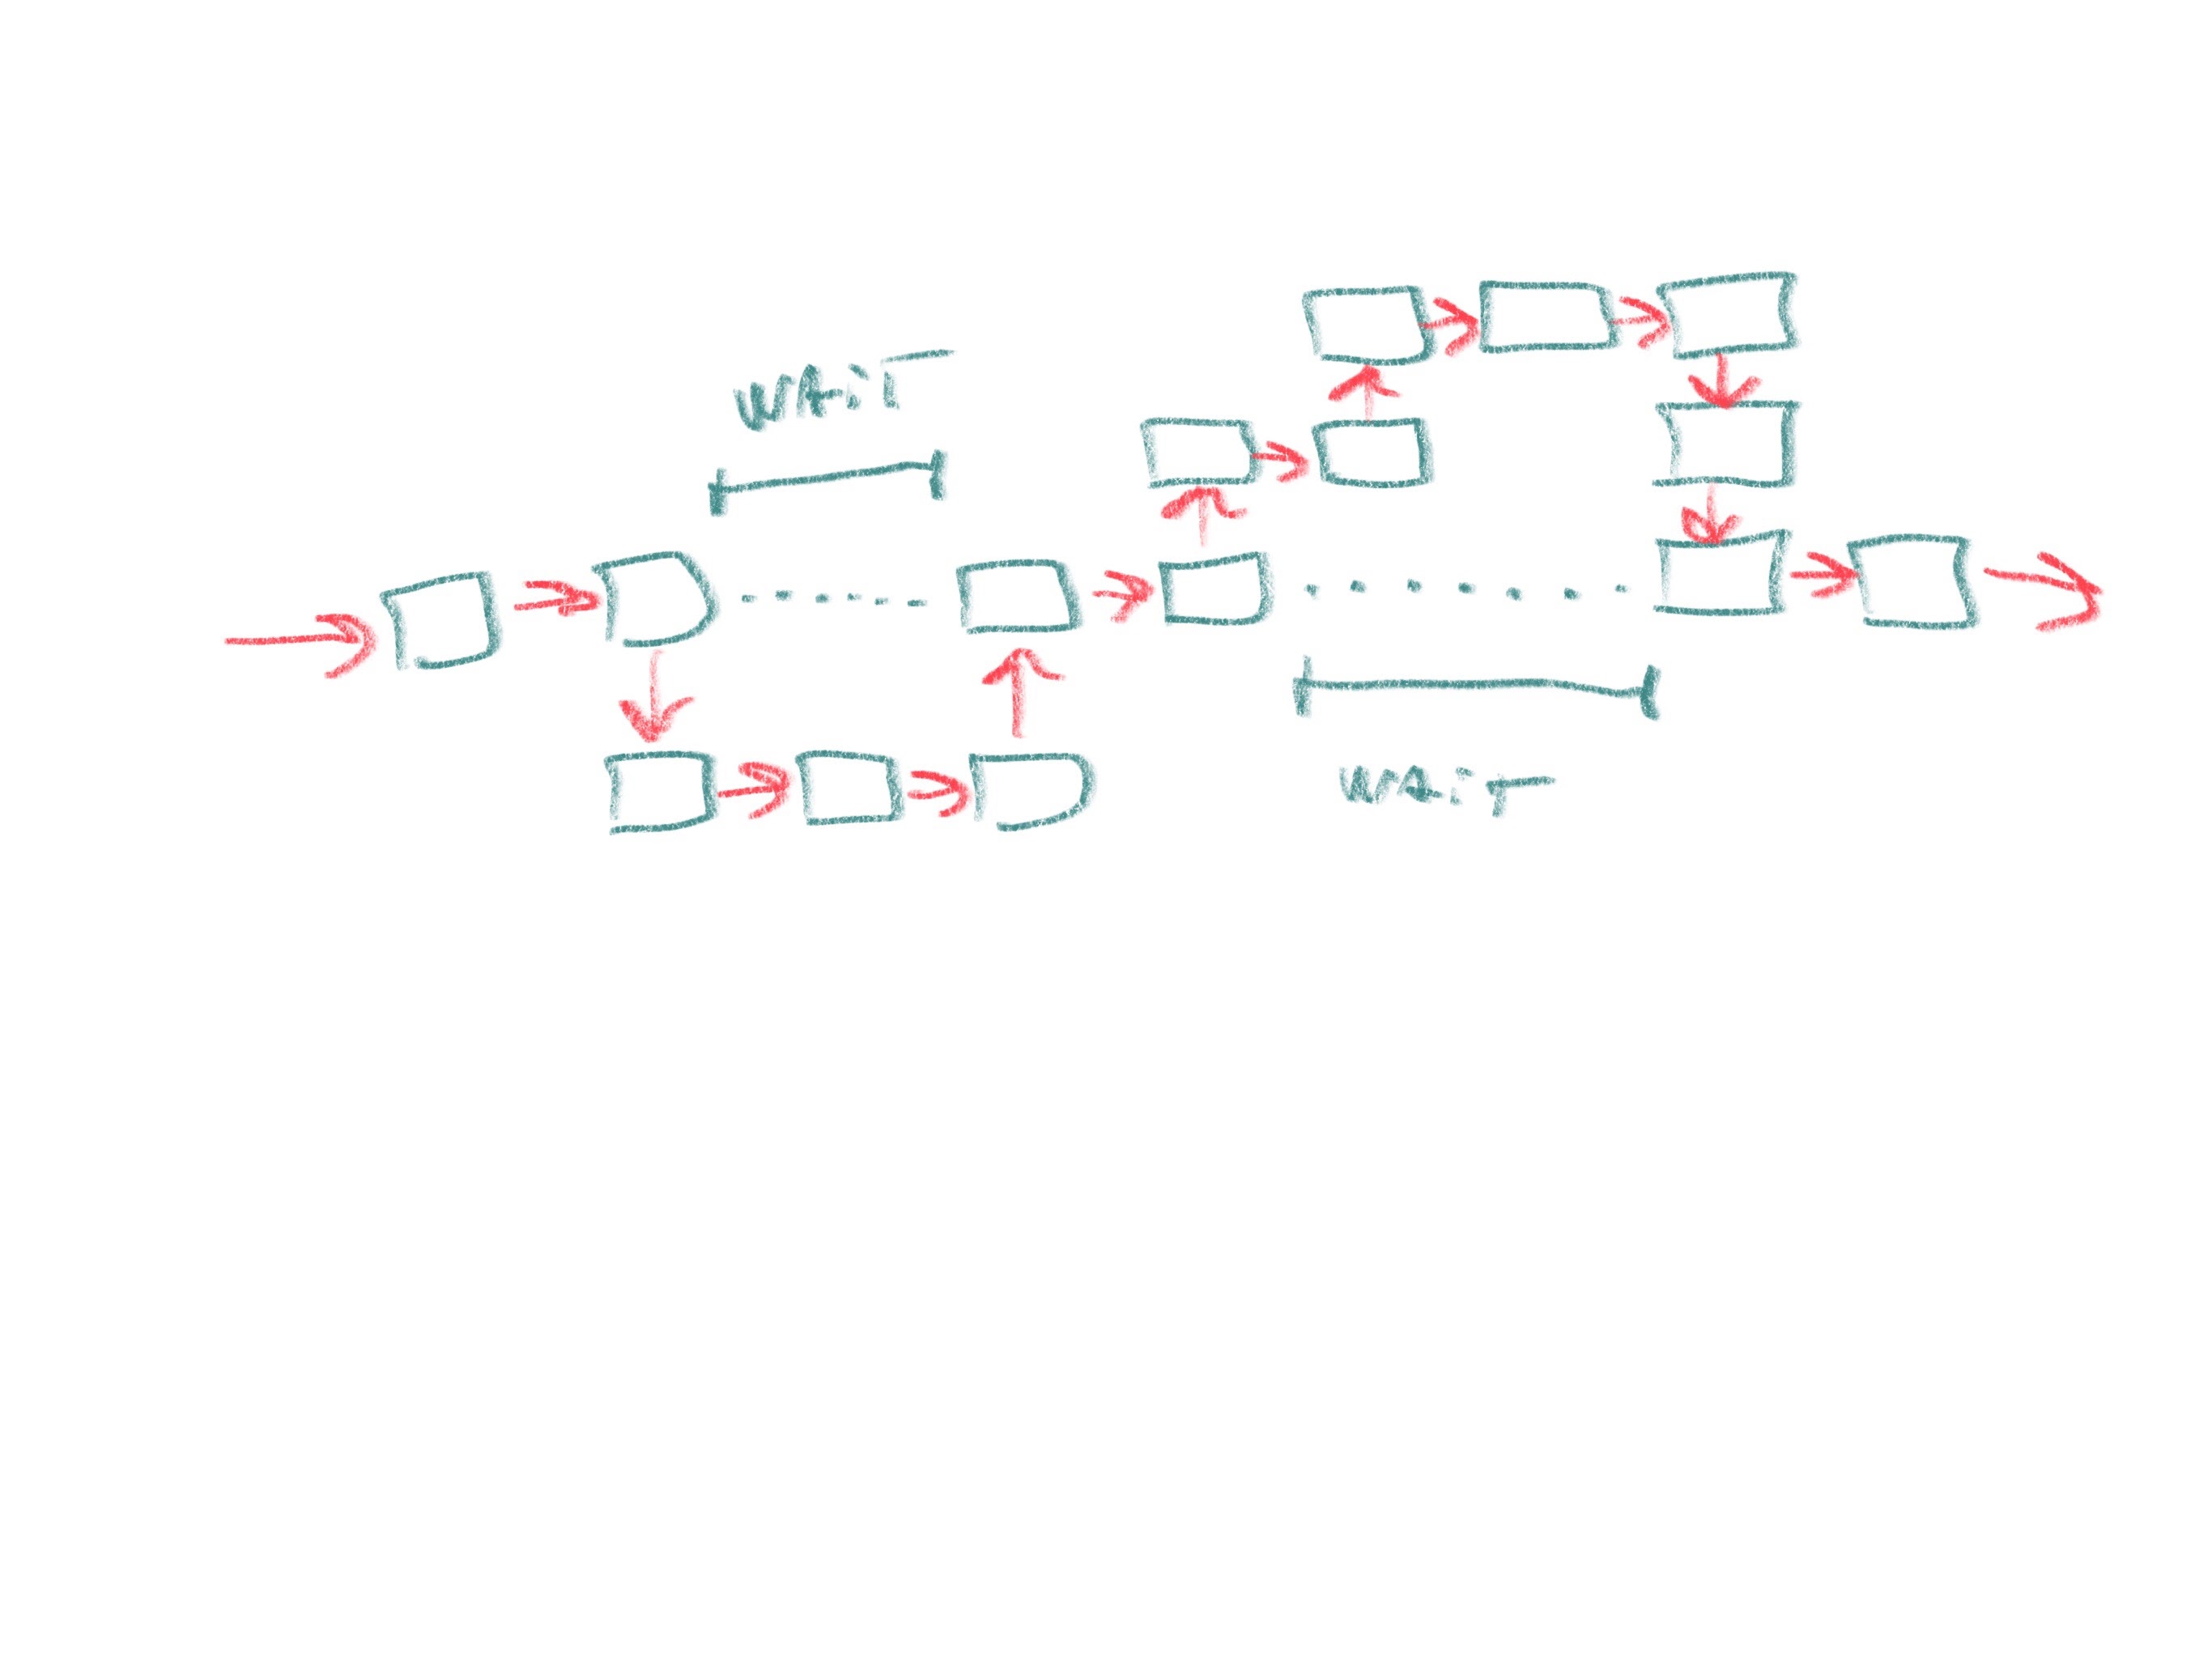 WAiT
WAiT